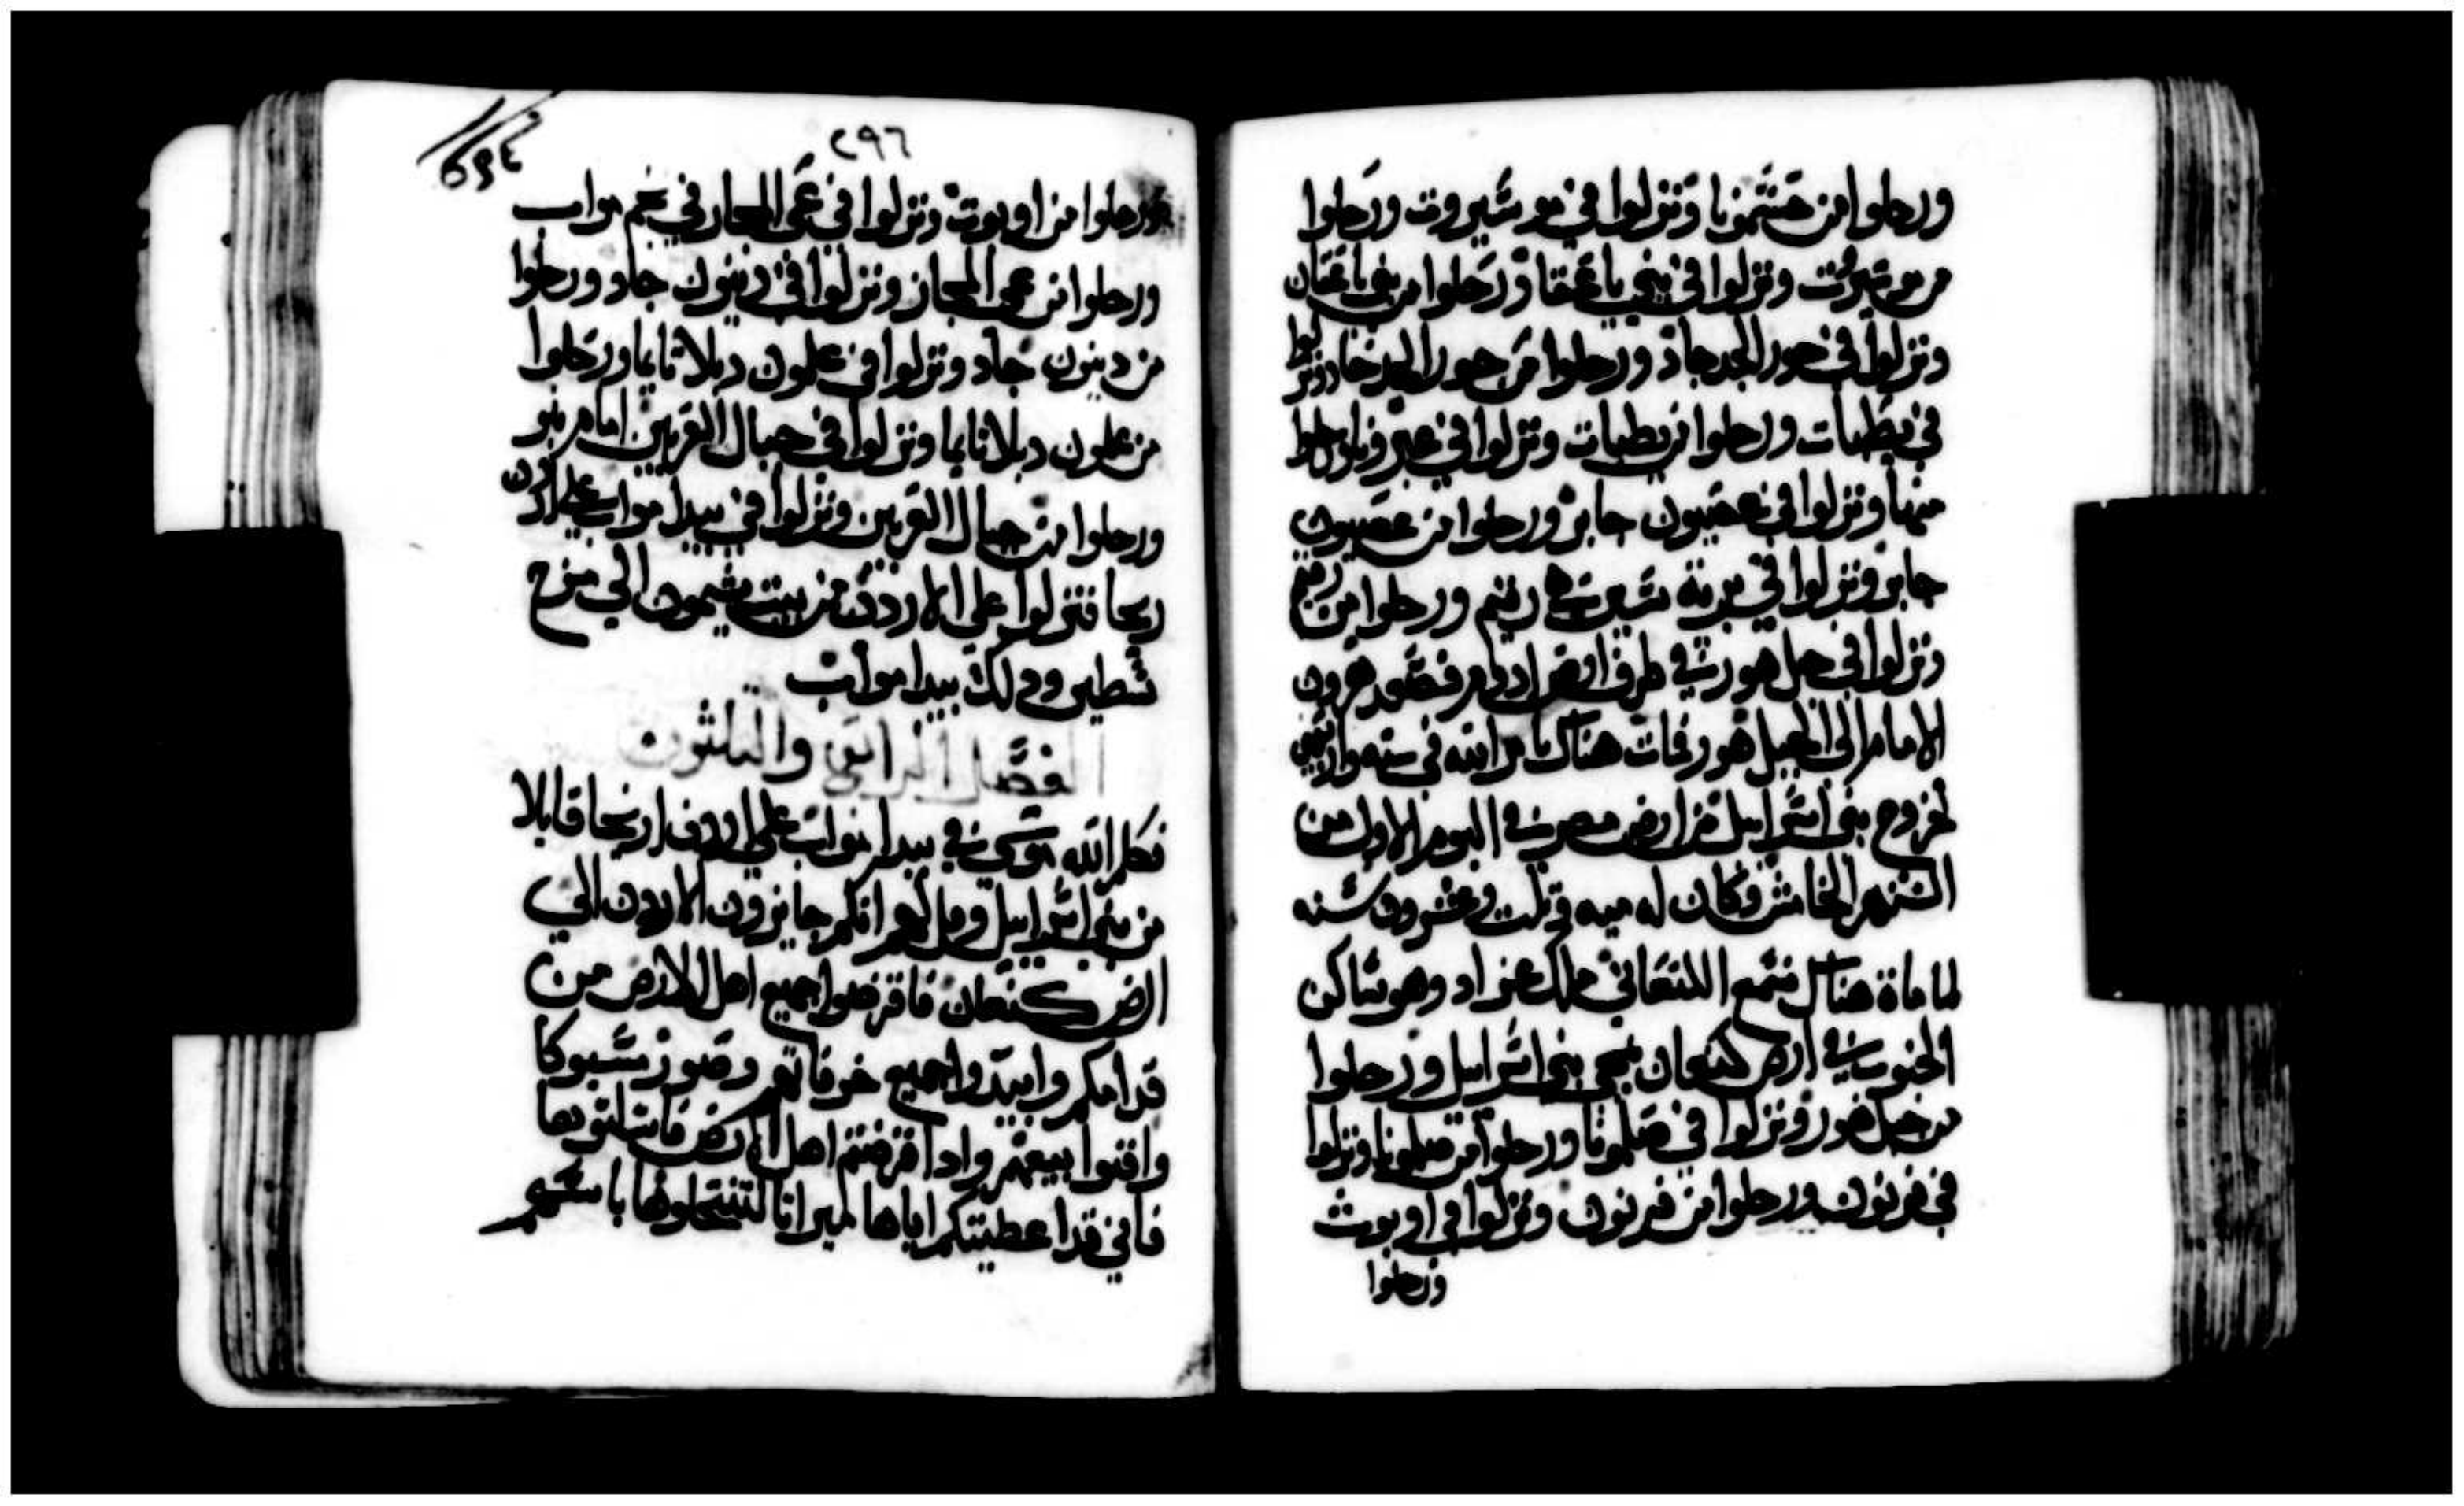 ورحلوا من حشمونا ونزلوا في موسيروت ورحلوا
من موسيروت ونزلوا في بني ياعقان ورحلوا من بني ياعقان
ونزلوا في حور الجدجاد ورحلوا من حور الجدجاد ونزلوا
في يطبات ورحلوا من يطبات ونزلوا في عبرونا ورحلوا
منها ونزلوا في عصيون جابر ورحلوا من عصيون
جابر ونزلوا في برية سين هي رقيم ورحلوا من رقيم
ونزلوا في جبل هور في طرف ارض ادوم فصعد هرون
الامام الى الجبل هور فمات هناك بامر الله في سنة واربعين
لخروج بني اسراييل من ارض مصر في اليوم الاول من
الشهر الخامس وكان له ميه وثلث وعشرون سنه
لما مات هناك فسمع الكنعاني ملك عراد وهو ساكن
الجنوب في ارض كنعان بمجي بني اسراييل ورحلوا
من جبل هور ونزلوا في صلمونا ورحلوا من صلمونا ونزلوا
في فرنون ورحلوا من فرنون ونزلوا في اوبوث
ورحلوا
٢٩٦
ورحلوا من اوبوت ونزلوا في عي المجاز في تخم مواب
ورحلوا من عي المجاز ونزلوا في ديبون جاد ورحلوا
من ديبون جاد ونزلوا في علمون دبلاثايا ورحلوا
من علمون دبلاثايا ونزلوا في جبال العبريين امام نبو
ورحلوا من جبال العبريين ونزلوا في بيدا مواب على اردن
ريحا فنزلوا على الاردن من بيت يشيمون الي مرج
شطين وذلك بيدا مواب
الفصل الرابع والثلثون
فكلم الله موسى في بيدا مواب على اردن اريحا قايلا
من بني اسراييل وقل لهم انكم جايزون الاردن الي
ارض كنعان فاقرضوا جميع اهل الارض من
قدامكم وابيدوا جميع خرفاتهم وصور سبوكا
وافنوا بيعهم واذا اقرضتم اهل الارض فاسكنوها
فاني قد اعطيتكم اياها ميراثا لتنتحلوها باسهم